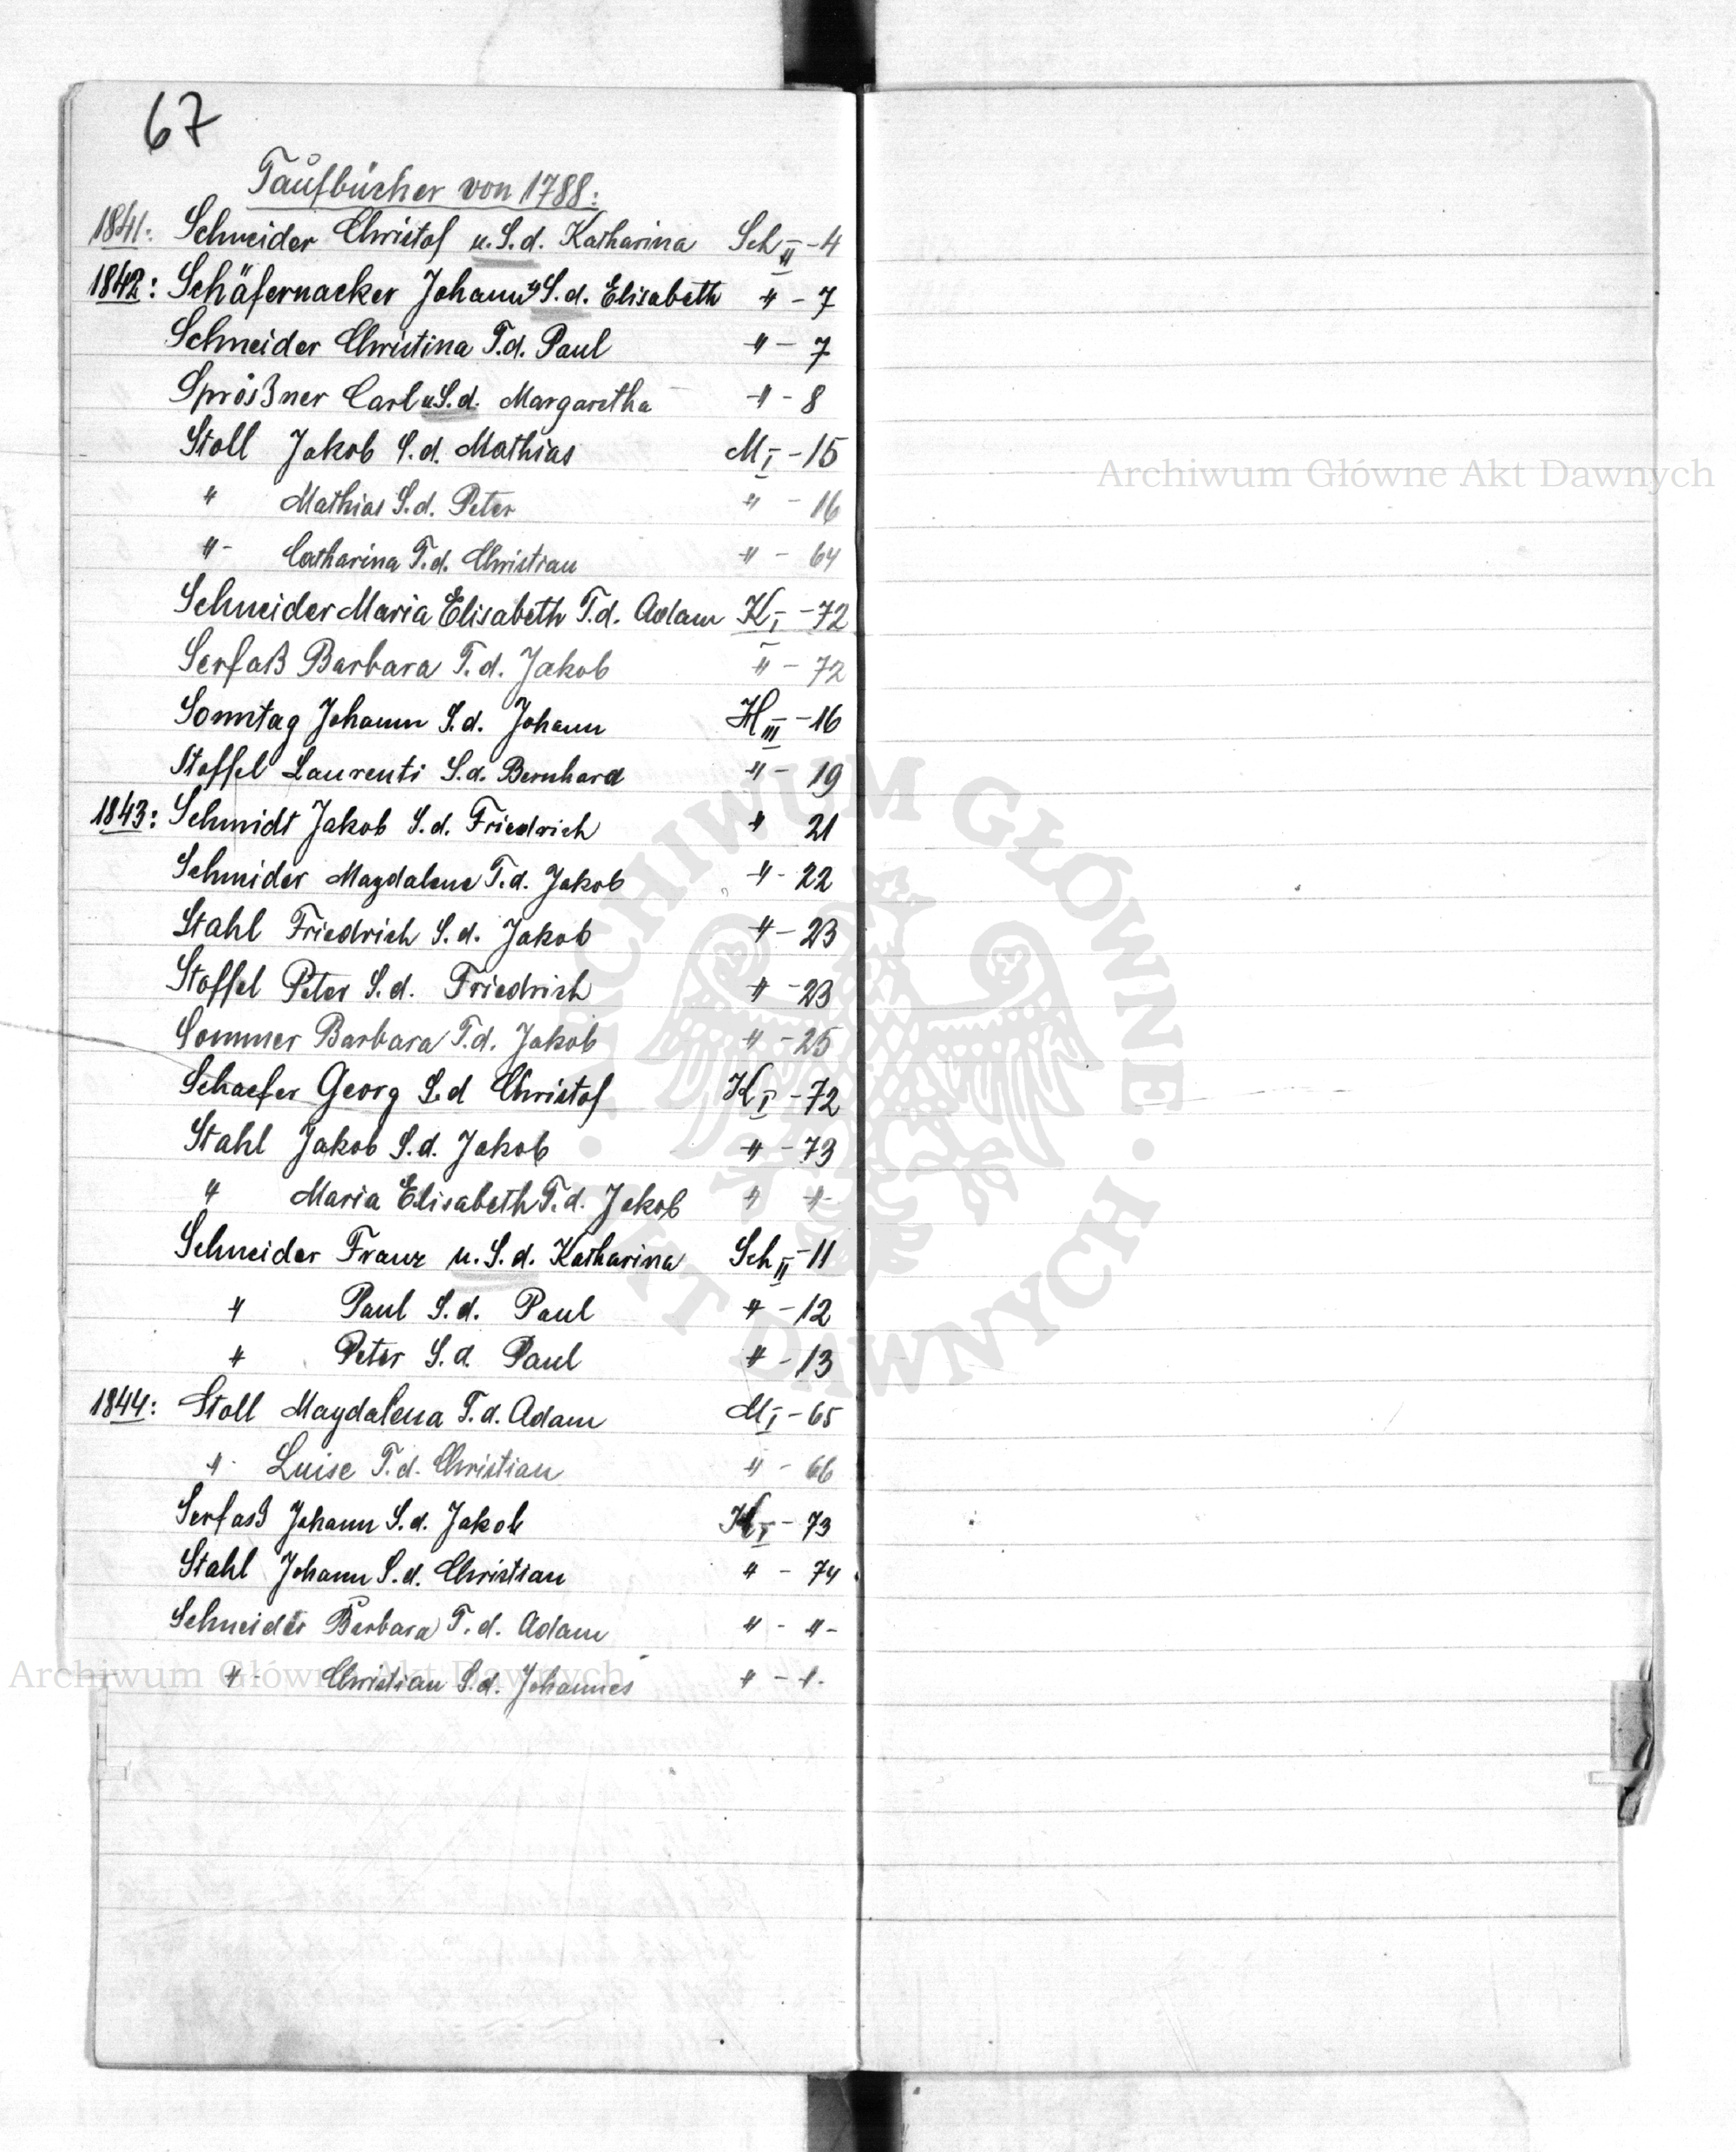 67
Taufbücher von 1788:
1841: Schneider Christof u. S. d. Katharina Sch II - 4
1842: Schäfernacker Johann u S. d. Elisabeth " - 7
Schneider Christina T. d. Paul " - 7
Sprößner Carl u S. d. Margaretha " - 8
Stoll Jakob S. d. Mathias M I - 15
" Mathias S. d. Peter " - 16
" - Catharina T. d. Christian " - 64
Schneider Maria Elisabeth T. d. Adam K I - 72
Serfaß Barbara T. d. Jakob " - 72
Sonntag Johann S. d. Johann H III - 16
Stoffel Laurenti S. d. Bernhard " - 19
1843: Schmidt Jakob S. d. Friedrich " 21
Schneider Magdalena T. d. Jakob " - 22
Stahl Friedrich S. d. Jakob " - 23
Stoffel Peter S. d. Friedrich " - 23
Sommer Barbara T. d. Jakob " - 25
Schaefer Georg S. d Christof K I - 72
Stahl Jakob S. d. Jakob " - 73
" Maria Elisabeth T. d. Jakob " " -
Schneider Franz u. S. d. Katharina Sch II - 11
" Paul S. d. Paul " - 12
" Peter S. d. Paul " - 13
1844: Stoll Magdalena T. d. Adam M I - 65
" - Luise T. d. Christian " - 66
Serfaß Johann S. d. Jakob K I - 73
Stahl Johann S. d. Christian " - 74
Schneider Barbara T. d. Adam " - " -
" - Christian S. d. Johannes " - " -
Archiwum Główne Akt Dawnych
Archiwum Główne Akt Dawnych
ARCHIWUM GŁÓWNE · AKT DAWNYCH ·